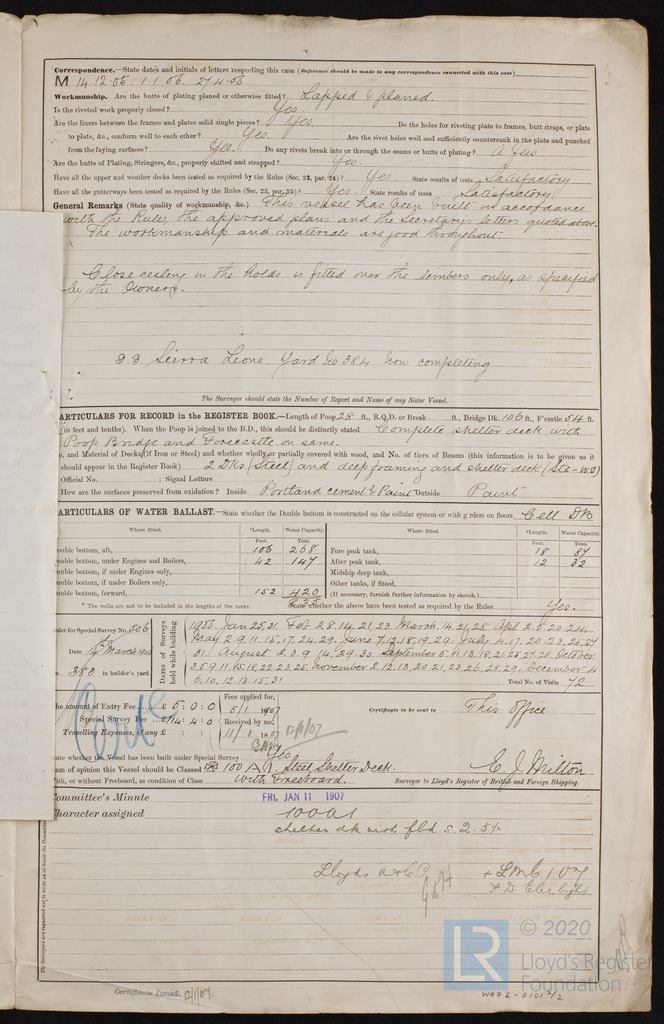 Correspondence.—State dates and initials of letters respecting this case (Reference should be made to any correspondence connected with this case)
M 14.12.05. 1.1.06. 27.4.06
Workmanship. Are the butts of plating planed or otherwise fitted? Lapped & planed.
Is the riveted work properly closed? Yes.
Are the liners between the frames and plates solid single pieces? Yes. Do the holes for riveting plate to frames, butt straps, or plate
to plate, &c., conform well to each other? Yes. Are the rivet holes well and sufficiently countersunk in the plate and punched
from the faying surfaces? Yes. Do any rivets break into or through the seams or butts of plating? A few
Are the butts of Plating, Stringers, &c., properly shifted and strapped? Yes.
Have all the upper and weather decks been tested as required by the Rules (Sec. 23, par. 24)? Yes. State results of tests Satisfactory
Have all the gutterways been tested as required by the Rules (Sec. 23, par. 25)? Yes. State results of tests Satisfactory
General Remarks (State quality of workmanship, &c.) This vessel has been built in accordance
with the Rules, the approved plans and the Secretary's letters quoted above.
The workmanship and materials are good throughout.
Close ceiling in the holds is fitted over the limbers only, as specified
by the Owners.
S.S. Sierra Leone. Yard No 384 now completing
The Surveyor should state the Number of Report and Name of any Sister Vessel.
ARTICULARS FOR RECORD in the REGISTER BOOK.—Length of Poop 28 ft., R.Q.D. or Break ft., Bridge Dk. 106 ft., F'castle 54 ft.
(in feet and tenths). When the Poop is joined to the B.D., this should be distinctly stated Complete shelter deck with
Poop Bridge and Forecastle on same.
o. and Material of Decks (if Iron or Steel) and whether wholly or partially covered with wood, and No. of tiers of Beams (this information is to be given as it
should appear in the Register Book) 2 Dks (Steel) and deep framing and shelter deck (Ste-WS)
Official No. ; Signal Letters
How are the surfaces preserved from oxidation? Inside Portland cement & Paint Outside Paint
ARTICULARS OF WATER BALLAST.—State whether the Double bottom is constructed on the cellular system or with girders on floors Cell DB
Where fitted. *Length. Water Capacity. Where fitted. *Length. Water Capacity.
Feet. Tons. Feet. Tons.
ouble bottom, aft, 106 268 Fore peak tank, 18 67
ouble bottom, under Engines and Boilers, 42 147 After peak tank, 12 32
ouble bottom, if under Engines only, Midship deep tank,
ouble bottom, if under Boilers only, Other tanks, if fitted,
ouble bottom, forward, 152 420 (If necessary, furnish further information by sketch.)
* The wells are not to be included in the lengths of the tanks. State whether the above have been tested as required by the Rules Yes.
der for Special Survey No. 506
Date 15th March 1906
o. 383 in builder's yard.
DATES of Surveys held while building
1906. Jan 25, 31. Feb. 2. 8. 14. 21. 23. March. 14. 21. 28. Apl. 2. 6. 20. 24.
May 2. 9. 11. 15. 17. 24. 29. June 7. 12. 18. 19. 29. July 4. 17. 20. 23. 26. 27
31. August 2. 3. 9. 14. 29. 30. September 5. 11. 13. 18. 21. 25. 27. 28. October
3. 5. 9. 11. 15. 18. 22. 23. 25. November 2. 12. 13. 20. 21. 23. 26. 28. 29. December 4
6. 10. 12. 13. 15. 31
Total No. of Visits 72
he amount of Entry Fee .... £ 5 : 0 : 0
Special Survey Fee ... £ 14 : 4 : 0
Travelling Expenses, if any £ : :
Fees applied for,
5/1 1907
Received by me,
11/1 1907
12/1/07
Certificate to be sent to This Office
Cert
ate whether the Vessel has been built under Special Survey Yes
am of opinion this Vessel should be Classed 100 A1 Steel Shelter Deck.
ith, or without Freeboard, as condition of Class with Freeboard.
C. J. Milton
Surveyor to Lloyd's Register of British and Foreign Shipping.
Committee's Minute FRI. JAN 11 1907
Character assigned 100A1
shelter dk with fbd
Lloyds A & C.P. + LMC 1 07
+ D. Elec light
The Surveyors are requested not to write on or below the
Certificate Issued 12/1/07.
WR72-0101 2/2
© 2020
LR
Lloyd's Register
Foundation